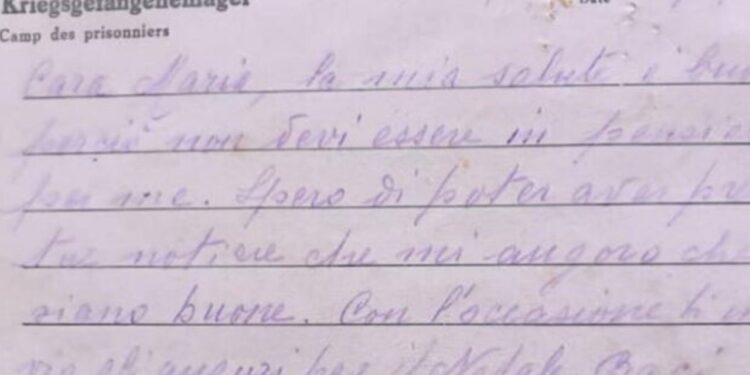 Kriegsgefangenenlager
Camp des prisonniers
Date
Cara Maria, la mia salute è
perciò non devi essere in
per me. Spero di poter aver
tue notizie che mi auguro
siano buone. Con l'occasione ti
gli auguri per il Natale. Baci